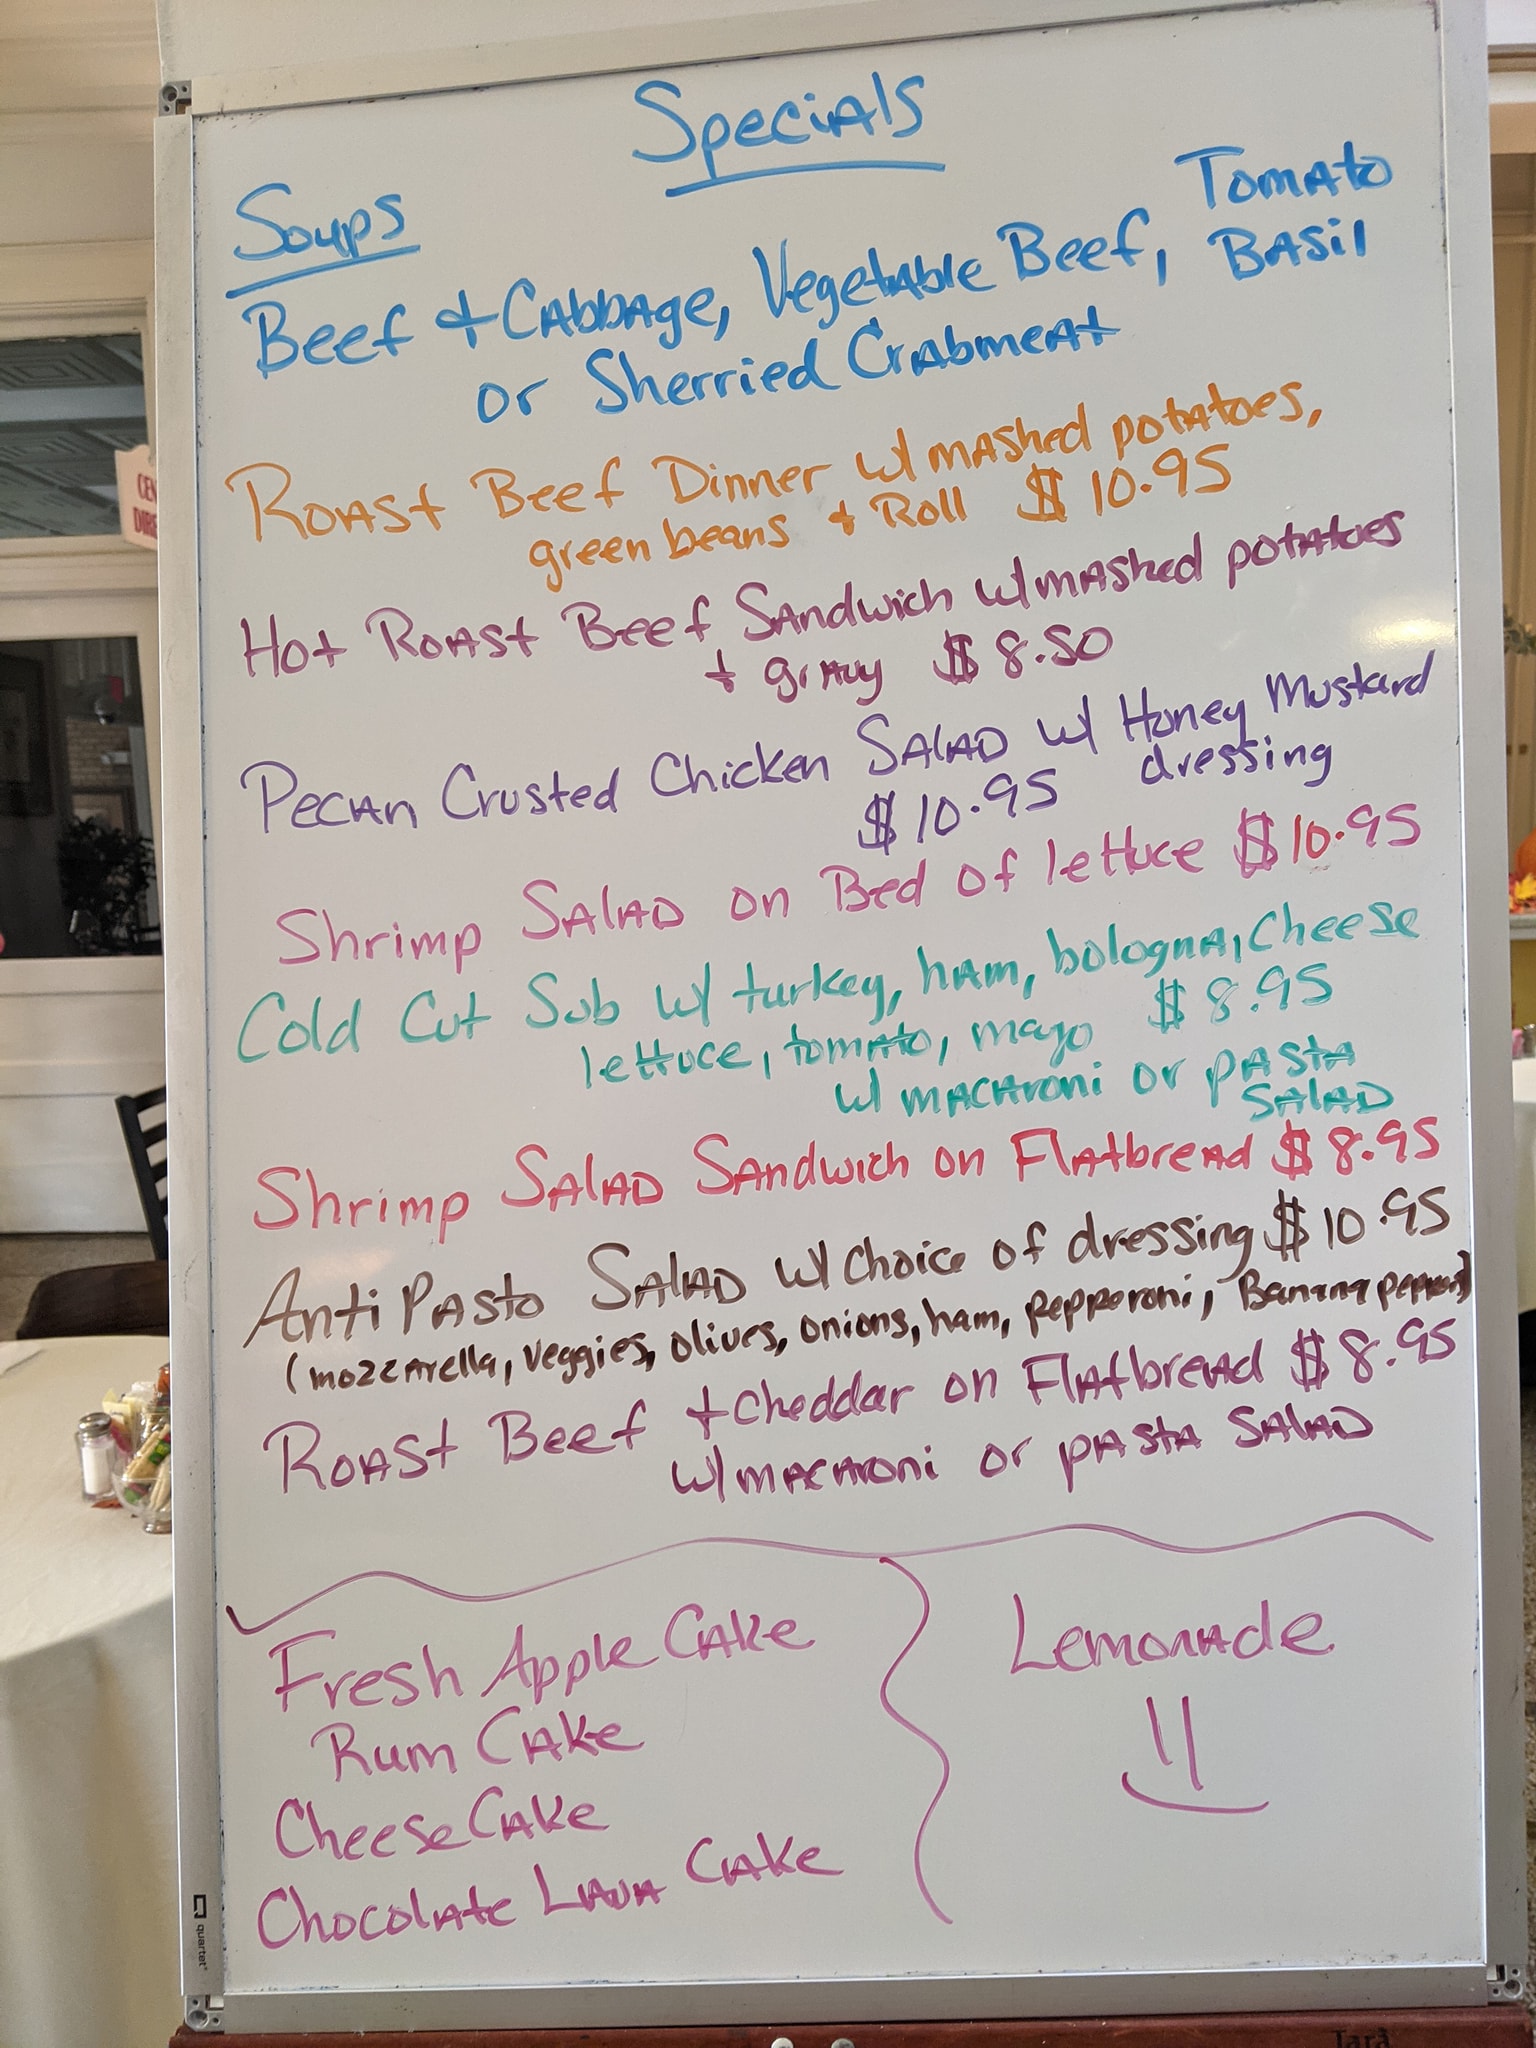 Specials
Soups
Beef + Cabbage, Vegetable Beef, Tomato Basil
or Sherried Crabmeat
Roast Beef Dinner w/ mashed potatoes,
green beans + Roll $10.95
Hot Roast Beef Sandwich w/ mashed potatoes
+ gravy $8.50
Pecan Crusted Chicken Salad w/ Honey Mustard
$10.95 dressing
Shrimp Salad on Bed of lettuce $10.95
Cold Cut Sub w/ turkey, ham, bologna, cheese
lettuce, tomato, mayo $8.95
w/ macaroni or pasta
salad
Shrimp Salad Sandwich on Flatbread $8.95
Anti Pasto Salad w/ choice of dressing $10.95
(mozzarella, veggies, olives, onions, ham, pepperoni, Banana peppers)
Roast Beef + cheddar on Flatbread $8.95
w/ macaroni or pasta salad
Fresh Apple Cake
Rum Cake
Cheese Cake
Chocolate Lava Cake
Lemonade
quartet
CEN
DIRE
Tara